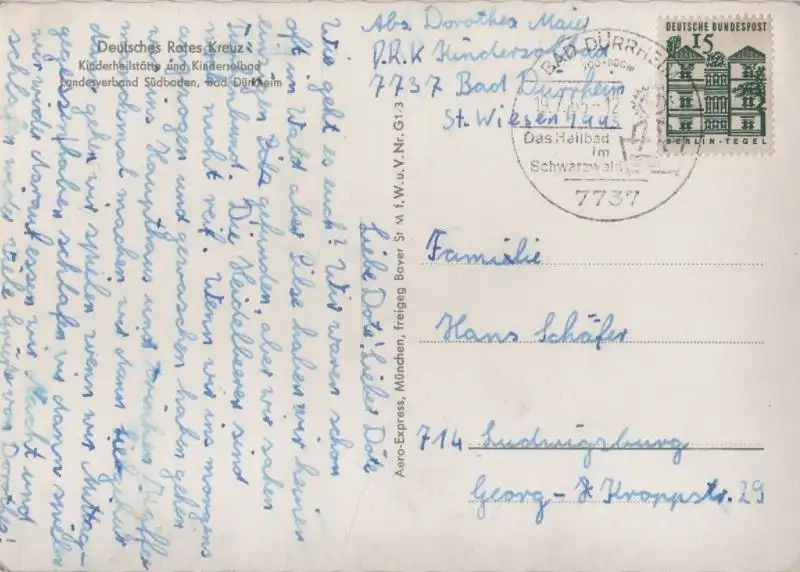 Deutsches Rotes Kreuz
Kinderheilstätte und Kindersolbad
Landesverband Südbaden, Bad Dürrheim
Abs. Dorothea Maier
D.R.K Kindersolbad
7737 Bad Dürrheim
St. Wiesenhaus
DEUTSCHE BUNDESPOST
15
BERLIN-TEGEL
BAD DÜRRHEIM
700-800m
19.7.65-12
Das Heilbad
im
Schwarzwald
7737
Familie
Hans Schäfer
714 Ludwigsburg
Georg-F Kroppstr. 29
Aero-Express, München, freigeg Bayer St M f. W. u. V. Nr. G1/3
Liebe Dote! Lieber Döte
Wie geht es euch? Wir waren schon
oft im Wald aber Pilse haben wir keinen
einzigen Pilz gefunden, aber wir sahen
Die Heidelberer sind
noch nicht reif. Wenn wir uns morgens
angezogen und gewaschen haben gehen
wir ins Haupthaus und trinken Kaffee
manchmal machen wir dann
dann gehen wir spielen wenn wir Mittag-
gegessen haben schlafen wir dann spielen
wir wieder darauf essen wir Nacht und
schlafen wieder viele Grüße von Dorothea!